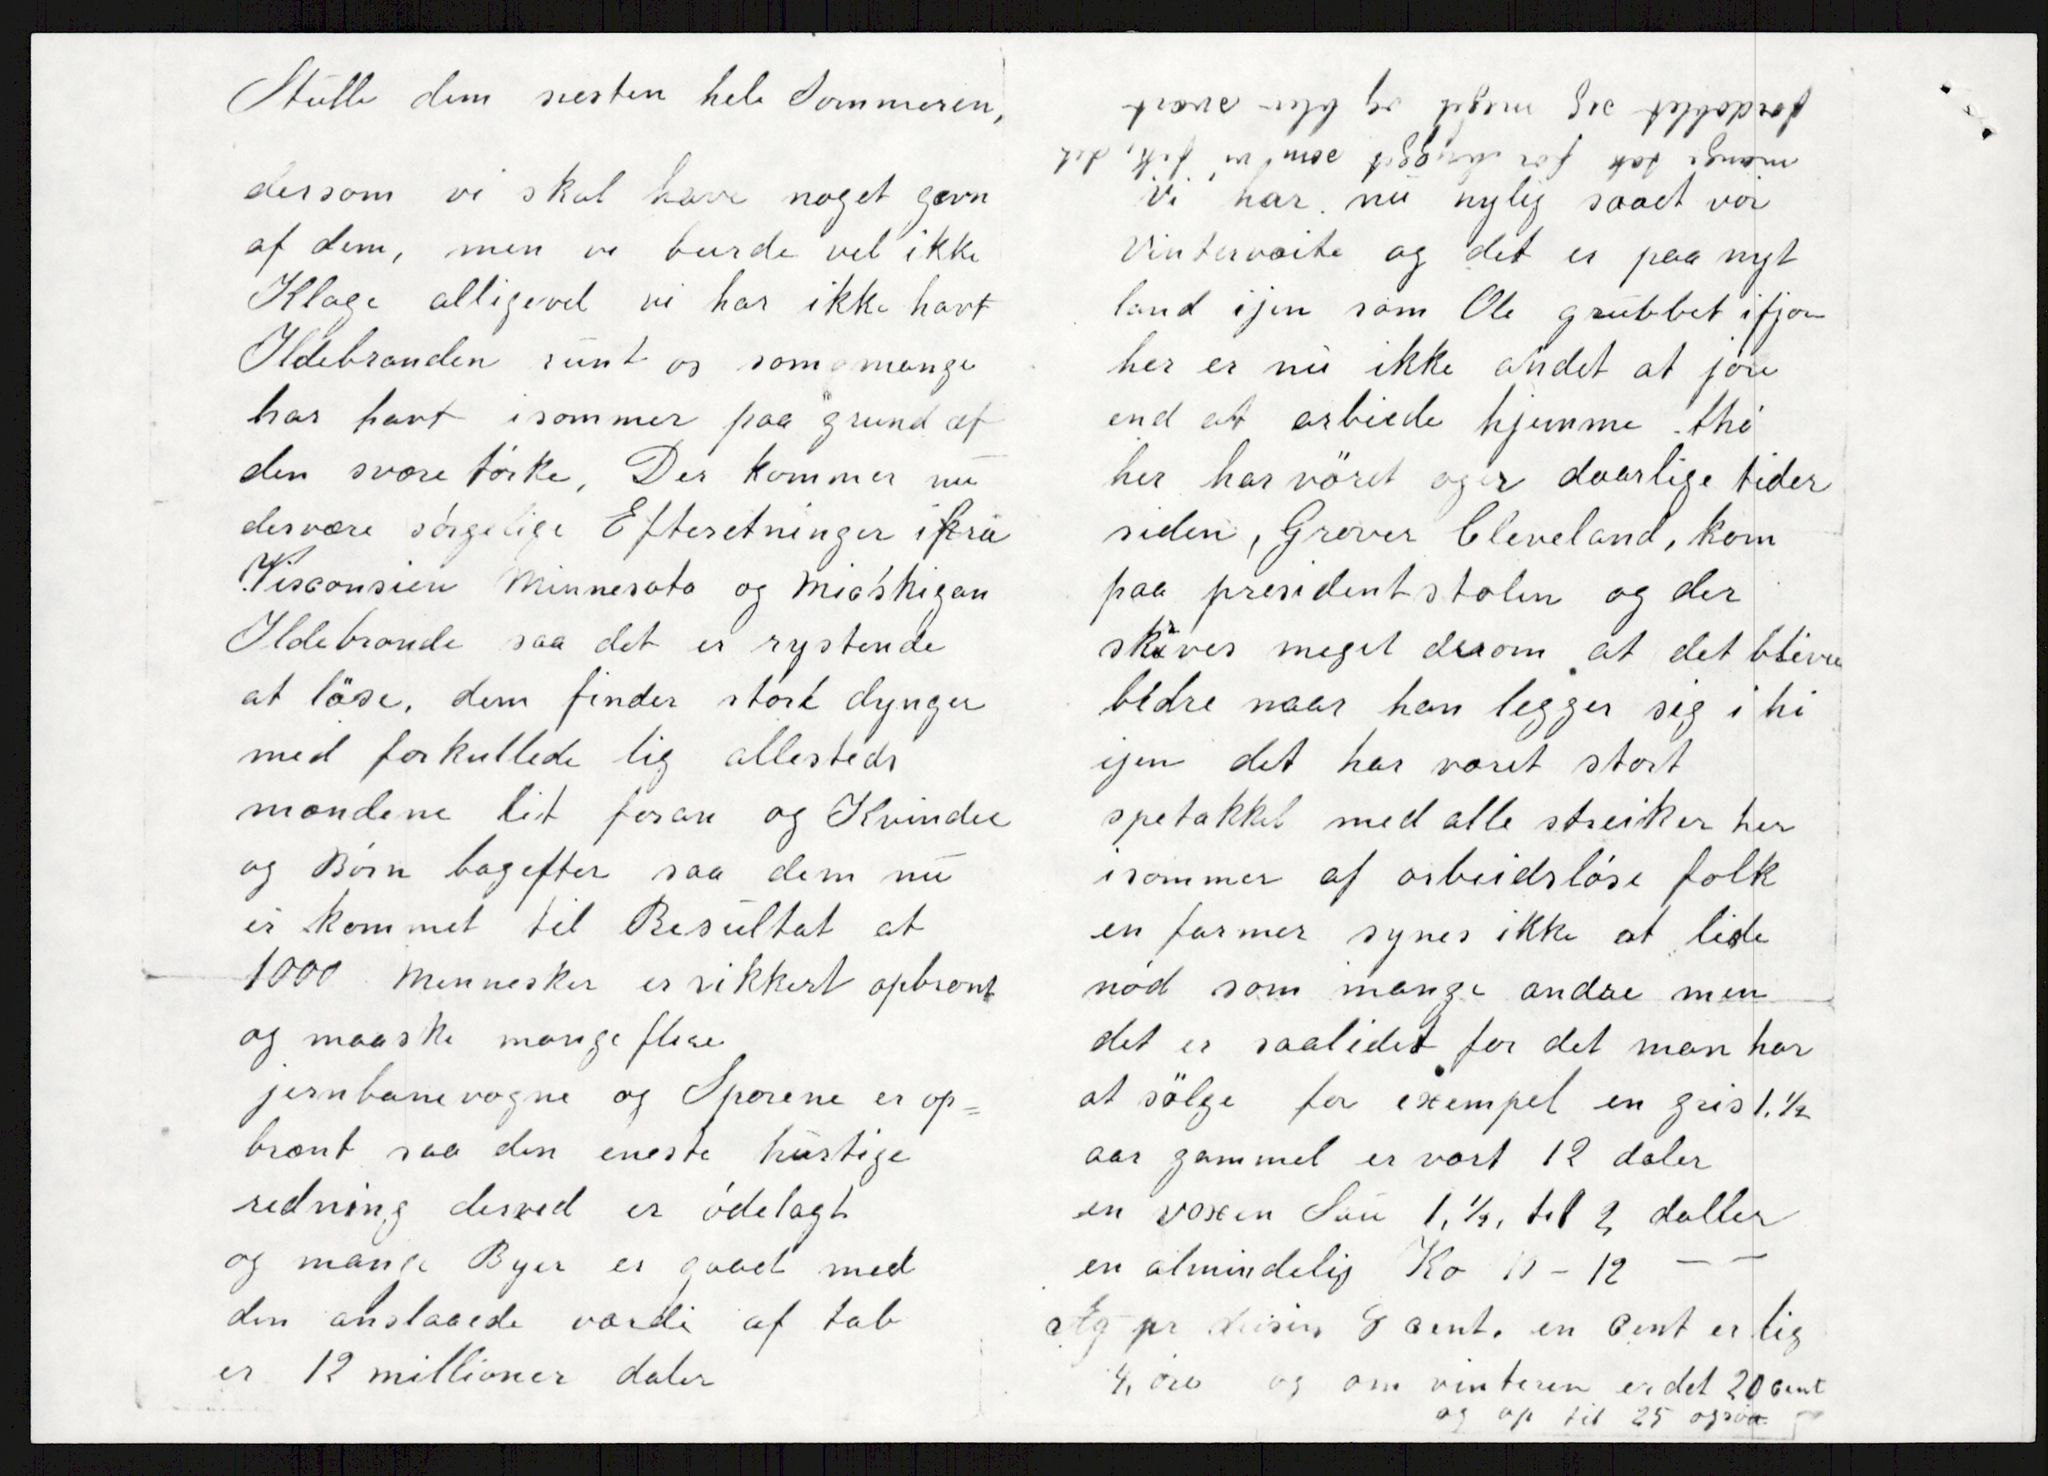 Stulle dem nesten hele Sommeren,
dersom vi skal have noget gavn
af dem, men vi burde vel ikke
Klage alligevel vi har ikke havt
Ildebranden runt os som mange
har havt isommer paa grund af
den svære tørke, Der kommer nu
desvære sørgelige Efteretninger ifra
Visconsien Minnesota og Mischigan
Ildebrande saa det er rystende
at läse, dem finder store dynger
med forkullede lig allesteds
mændene lit foran og Kvinder
og Børn bagefter saa dem nu
er kommet til Resultat at
1000 Mennesker er sikkert opbrent
og maaske mange flere
jernbanevogne og Sporene er op=
brent saa den eneste hurtige
redning derved er ødelagt
og mange Byer er gaaet med
den anslaaede værdi af tab
er 12 millioner daler
mange tak for brygget som vi fik, det
fordøblet seg meget og blev svært
Vi har nu nylig saaet vor
Vinterveite og det er paa nyt
land ijen som Ole grubbet ifjor
her er nu ikke andet at jøre
end at arbiede hjemme thi
her har vöret og er daarlige tider
siden, Grover Cleveland, kom
paa presidentstolen og der
skrives meget derom at det bliver
bedre naar han legger sig i hi
ijen det har været stort
spetakkel med alle streiker her
isommer af arbeidsløse folk
en farmer synes ikke at lide
nød som mange andre men
det er saalidet for det man har
at sölge for exempel en gris 1. 1/2
aar gammel er vært 12 daler
en voxen Sau 1. 1/2, til 2 daller
en almindelig Ko 10 - 12 — —
Eg pr dusin 8 cent. en Cent er lig
4, øre og om vinteren er det 20 cent
og op til 25 ogsaa